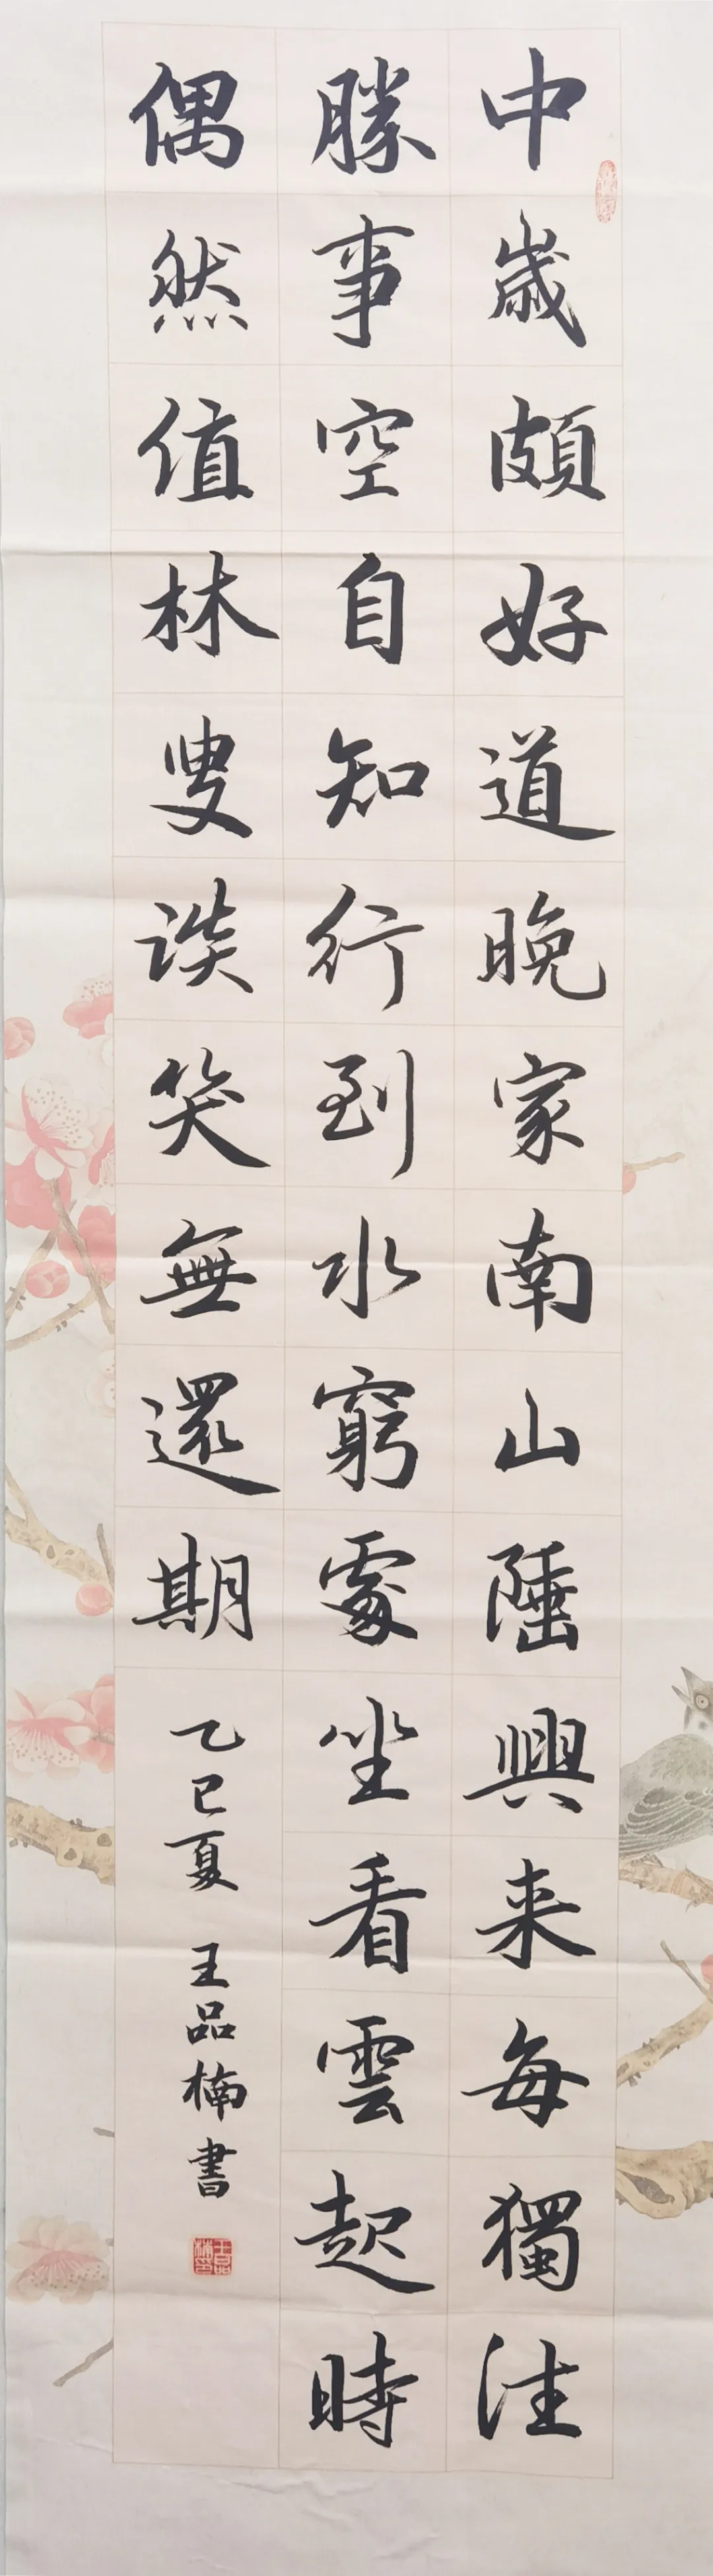 中歲頗好道晚家南山陲興来每獨往
勝事空自知行到水窮處坐看雲起時
偶然值林叟談笑無還期
乙巳夏 王品楠書